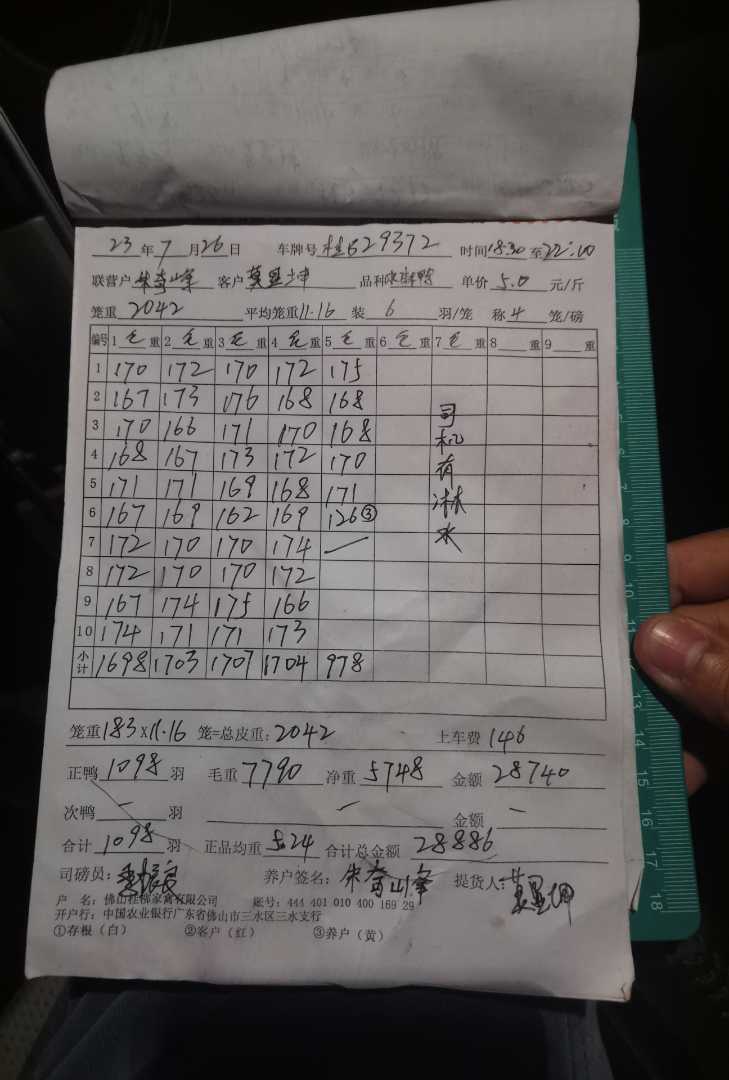 23年7月26日 车牌号桂B29372 时间18:30至22:10
联营户朱奇山峯 客户 品种 鸭 单价5.0元/斤
笼重2042 平均笼重11.16 装6羽/笼 称4笼/磅
编号 1毛重 2毛重 3毛重 4毛重 5毛重 6毛重 7毛重 8重 9重
1 170 172 170 172 175
2 167 173 176 168 168
3 170 166 171 170 168
4 168 167 173 172 170
5 171 171 169 168 171
6 167 169 162 169 126③
7 172 170 170 174 —
8 172 170 170 172
9 167 174 175 166
10 174 171 171 173
小计 1698 1703 1707 1704 978
司机有淋水
笼重183×11.16笼=总皮重:2042 上车费146
正鸭1098羽 毛重7790 净重5748 金额28740
次鸭—羽 — 金额—
合计1098羽 正品均重5.24 合计总金额28886
司磅员: 养户签名:朱奇山峯 提货人:
户 名:佛山桂柳家禽有限公司 账号:444 401 010 400 169 29
开户行:中国农业银行广东省佛山市三水区三水支行
①存根(白) ②客户(红) ③养户(黄)
6
7
8
9
10
11
13
14
15
16
17
18